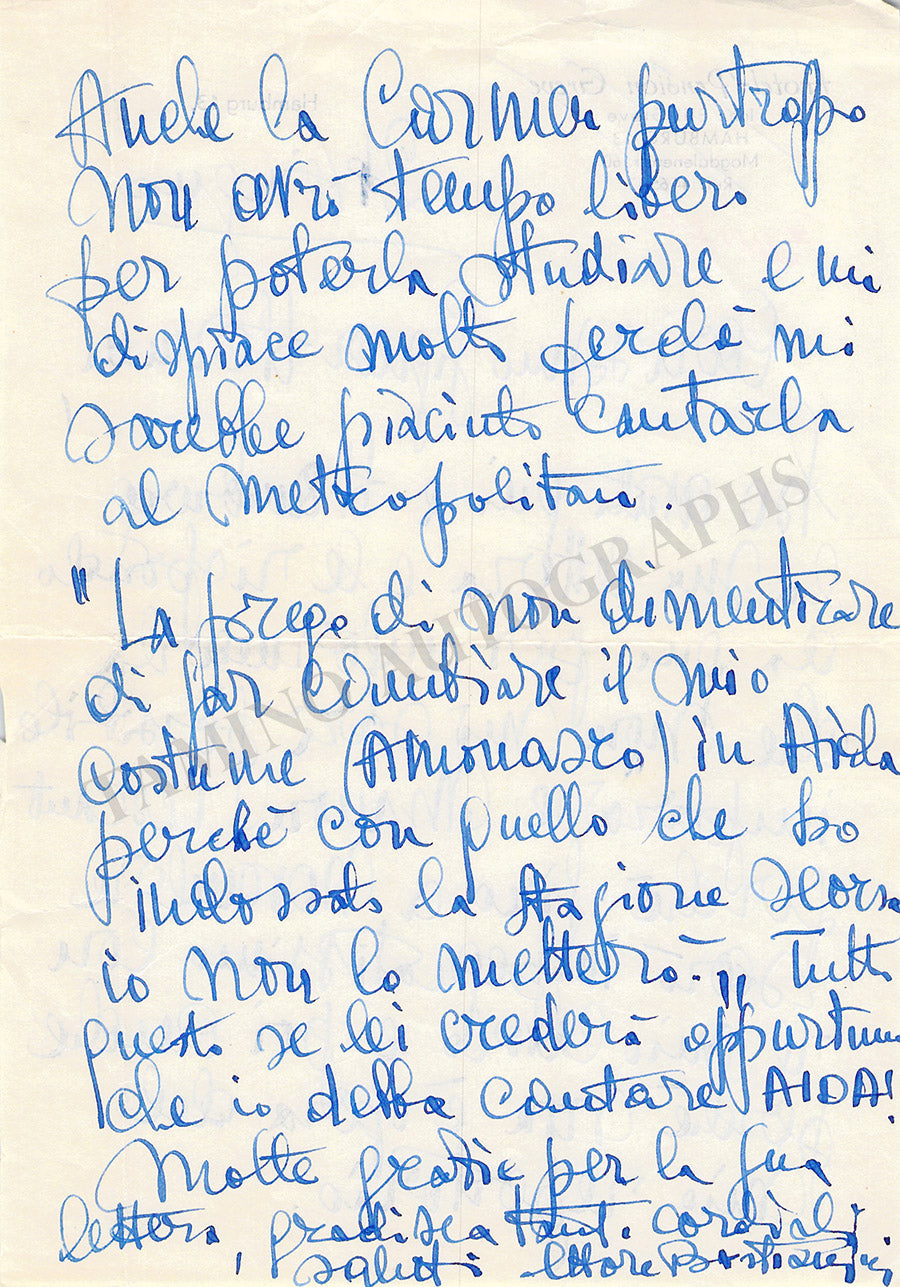 Anche la Carmen purtroppo
non avrò tempo libero
per poterla studiare e mi
dispiace molto perchè mi
sarebbe piaciuto cantarla
al Metropolitan.
"La prego di non dimenticare
di far cambiare il mio
costume (Amonasro) in Aida
perchè con quello che ho
indossato la stagione scorsa
io non lo metterò.„ Tutto
questo se lei crederà oppurtuno
che io debba cantare AIDA!
Molte grazie per la sua
lettera, gradisca tanti cordiali
saluti Ettore Bastianini
TAMINO AUTOGRAPHS
Hamburg 13,
HAMBURG